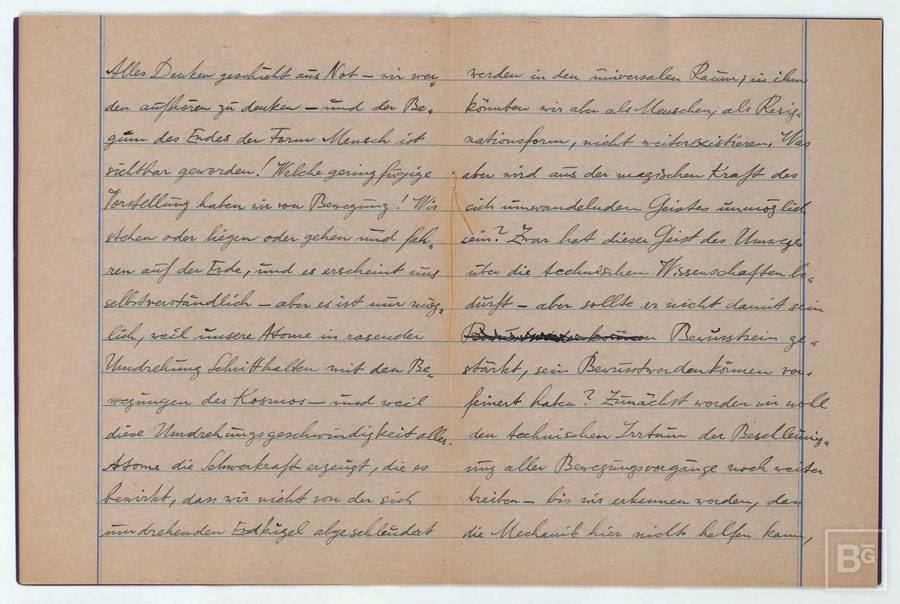 Alles Denken geschieht aus Not – wir wer-
den aufhören zu denken – und der Be-
ginn des Endes der Form Mensch ist
sichtbar geworden! Welche geringfügige
Vorstellung haben wir von Bewegung! Wir
stehen oder liegen oder gehen und fah-
ren auf der Erde, und es erscheint uns
selbstverständlich – aber es ist nur mög-
lich, weil unsere Atome in rasender
Umdrehung Schritthalten mit den Be-
wegungen des Kosmos – und weil
diese Umdrehungsgeschwindigkeit aller
Atome die Schwerkraft erzeugt, die es
bewirkt, dass wir nicht von der sich
umdrehenden Erdkugel abgeschleudert
werden in den universalen Raum; in ihm
könnten wir aber als Menschen, als Resig-
nationsform, nicht weiterexistieren. Was
aber wird aus der magischen Kraft des
sich umwandelnden Geistes unmöglich
sein? Zwar hat dieser Geist des Umweges
über die technischen Wissenschaften be-
durft – aber sollte er nicht damit sein
Bewusstsein ge-
stärkt, sein Bewusstwerdenkönnen ver-
feinert haben? Zunächst werden wir wohl
den technischen Irrtum der Beschleunig-
ung aller Bewegungsvorgänge noch weiter
treiben – bis wir erkennen werden, dass
die Mechanik hier nicht helfen kann,
BG